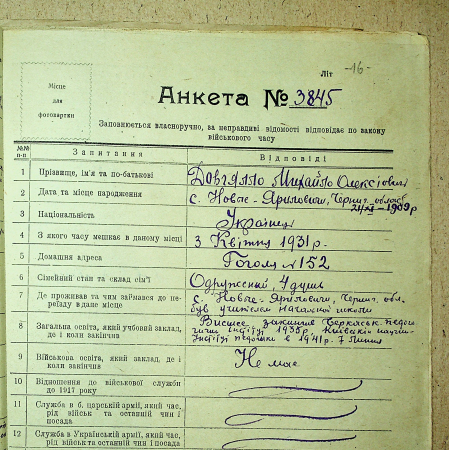 Літ -16-
Місце
для
фотокартки
Анкета № 3845
Заповнюється власноручно, за неправдиві відомості відповідає по закону
військового часу
№№ п-п Запитання Відповіді
1 Прізвище, ім'я та по-батькові Довгялло Михайло Олексіович
2 Дата та місце народження с. Нов Яриловичи, Черниг. област
21/XI-1909 р
3 Національність Українец
4 З якого часу мешкає в даному місці 3 Квітня 1931 р.
5 Домашня адреса Гоголя № 152
6 Сімейний стан та склад сім'ї Одружений, 4 душі
7 Де проживав та чим займався до пе-
реїзду в дане місце
с. Нов Яриловичи, Черниг. обл.
був учителем начальної школи
8 Загальна освіта, який учбовий заклад,
де і коли закінчив
Висшее, закінчив Черкаськ. педаго-
гичний інстіту 1935 р.
інстітут педагогики в 1941 р. 7 Липня
9 Військова освіта, який заклад, де і
коли закінчив
Не має
10 Відношення до військової служби
до 1917 року
11 Служба в б. царській армії, який час,
рід військ та останній чин і
посада
12 Служба в Українській армії, який час,
рід військ та останній чин і посада